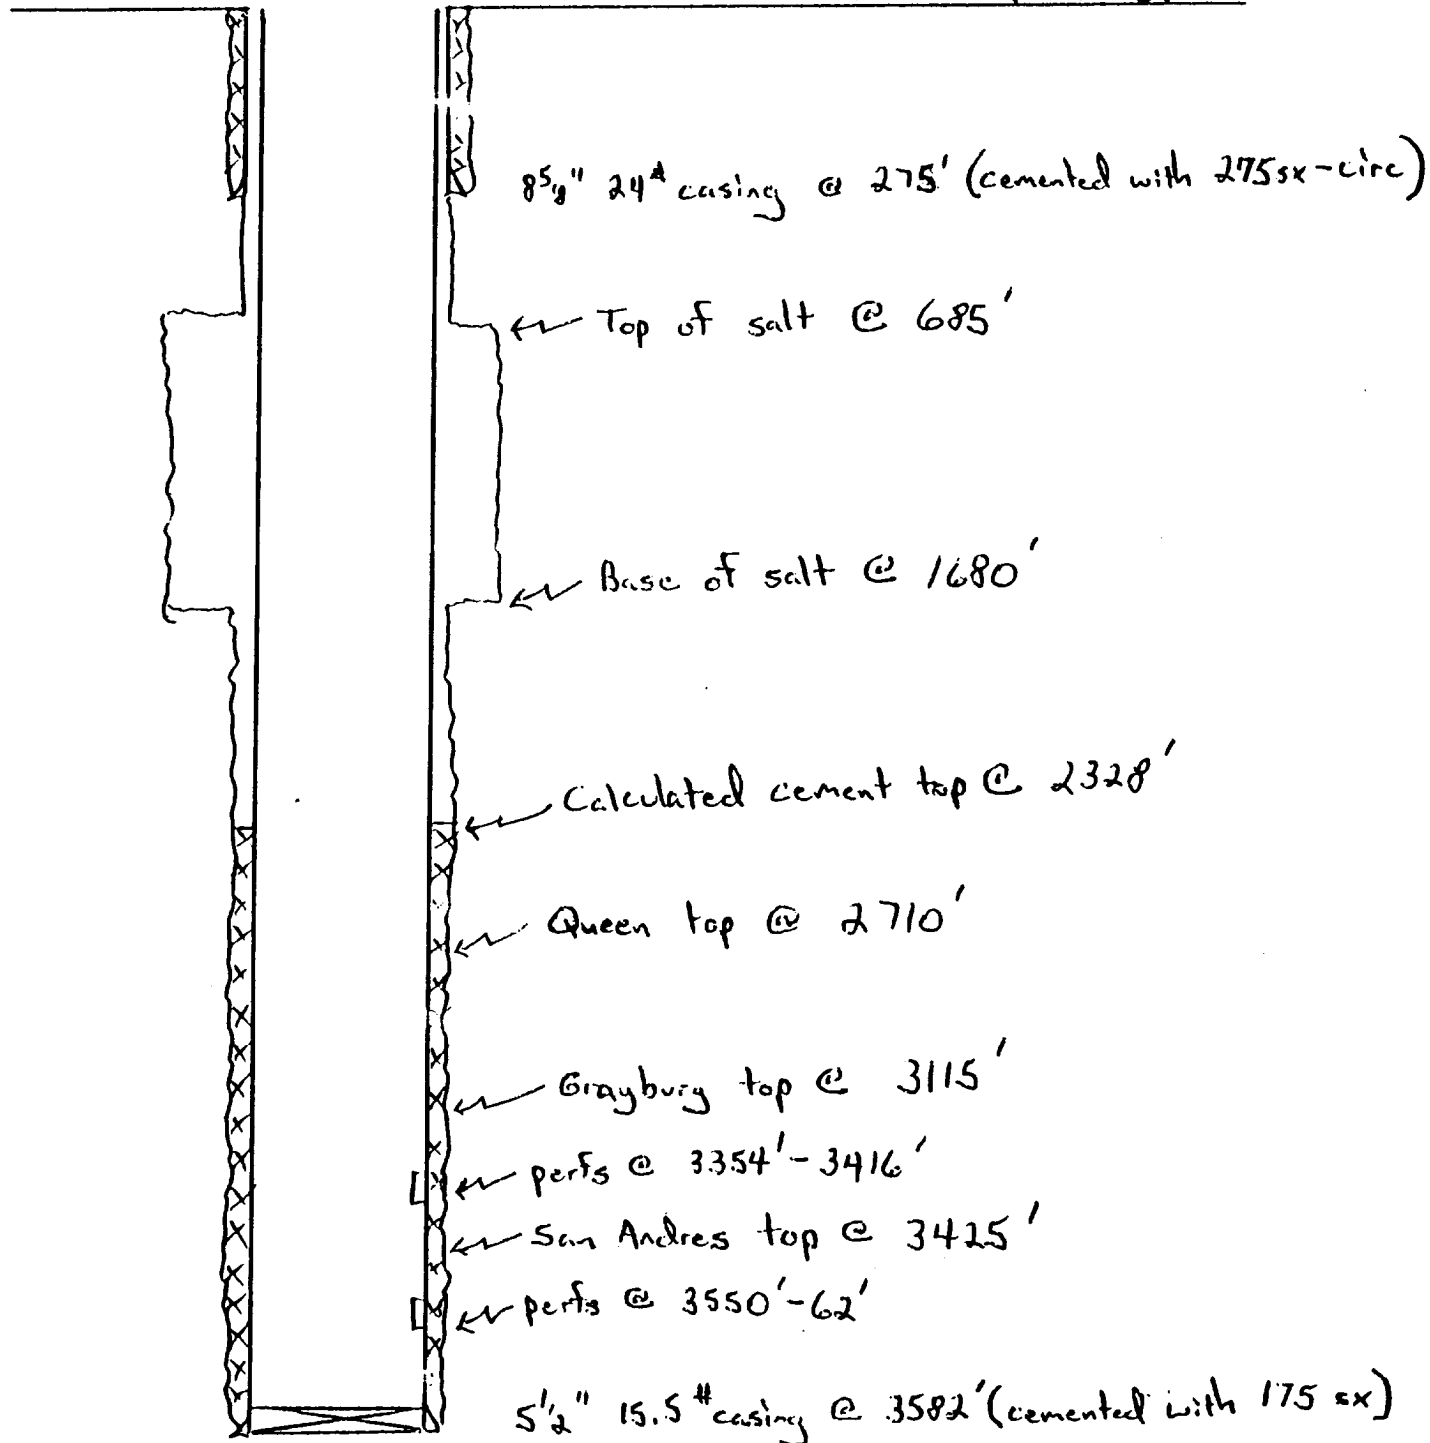 8 5/8" 24# casing @ 275' (cemented with 275sx-circ)
Top of salt @ 685'
Base of salt @ 1680'
Calculated cement top @ 2328'
Queen top @ 2710'
Grayburg top @ 3115'
perfs @ 3354'-3416'
San Andres top @ 3425'
perfs @ 3550'-62'
5 1/2" 15.5# casing @ 3582' (cemented with 175 sx)